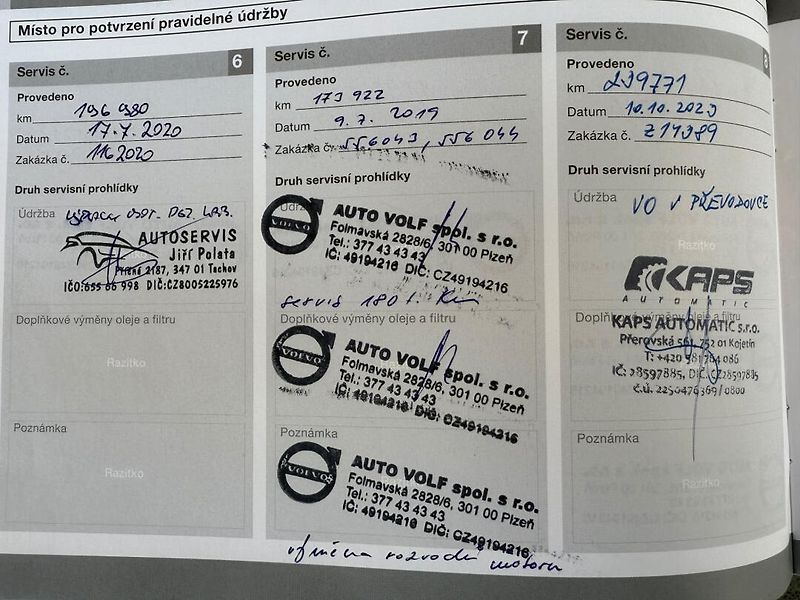 Místo pro potvrzení pravidelné údržby
Servis č. 6
Provedeno
km 196 980
Datum 17.7. 2020
Zakázka č. 1162020
Druh servisní prohlídky
Údržba
AUTOSERVIS
Jiří Polata
2187, 347 01 Tachov
IČO:655 66 998 DIČ:CZ8005225976
Doplňkové výměny oleje a filtru
Razítko
Poznámka
Razítko
Servis č. 7
Provedeno
km 173 922
Datum 9.7. 2019
Zakázka č. 556043, 556 044
Druh servisní prohlídky
Údržba
VOLVO
AUTO VOLF spol. s r.o.
Folmavská 2828/6, 301 00 Plzeň
Tel.: 377 43 43 43
IČ: 49194216 DIČ: CZ49194216
servis 180 t. Km
Doplňkové výměny oleje a filtru
VOLVO
AUTO VOLF spol. s r.o.
Folmavská 2828/6, 301 00 Plzeň
Tel.: 377 43 43 43
IČ: 49194216 DIČ: CZ49194216
Poznámka
VOLVO
AUTO VOLF spol. s r.o.
Folmavská 2828/6, 301 00 Plzeň
Tel.: 377 43 43 43
IČ: 49194216 DIČ: CZ49194216
výměna rozvodů motoru
Servis č. 8
Provedeno
km 239771
Datum 10.10.2023
Zakázka č. Z14389
Druh servisní prohlídky
Údržba
VO V PŘEVODOVCE
Razítko
KAPS
AUTOMATIC
Doplňkové výměny oleje a filtru
KAPS AUTOMATIC s.r.o.
Přerovská 561, 752 01 Kojetín
T: +420 581 764 086
IČ: 28597885, DIČ: CZ28597885
č.ú. 2250476369/0800
Poznámka
Razítko